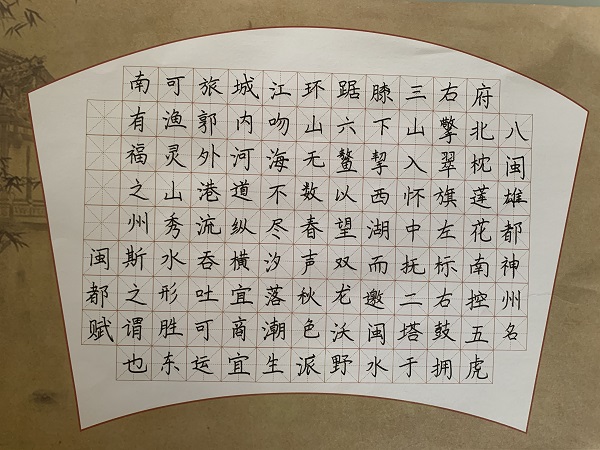 八闽雄都神州名
府北枕莲花南控五虎
右擎翠旗左标右鼓拥
三山入怀中抚二塔于
膝下挈西湖而邀闽水
踞六鳌以望双龙沃野
环山无数春声秋色派
江吻海不尽汐落潮生
城内河道纵横宜商宜
旅郭外港流吞吐可运
可渔灵山秀水形胜东
南有福之州斯之谓也
闽都赋